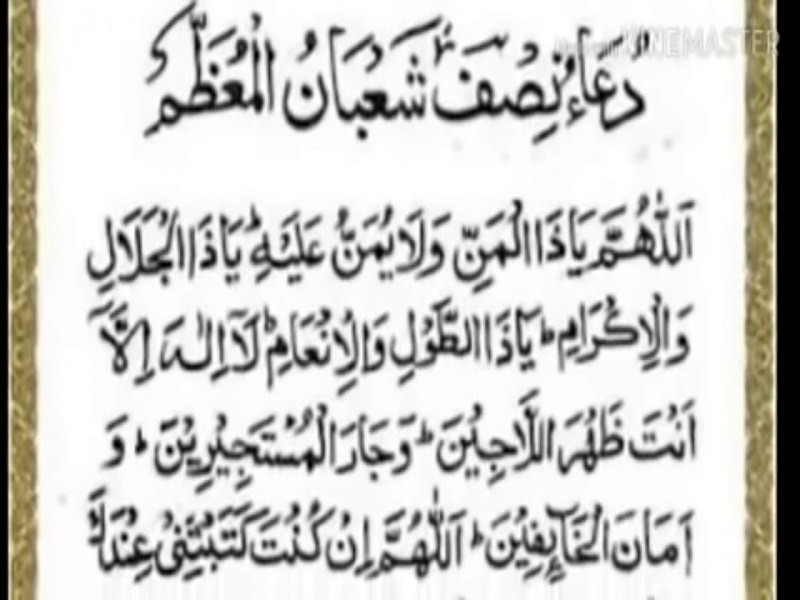 KINEMASTER
دُعَاءِ نِصْفَ شَعْبَانُ الْمُعَظَّمْ
اَللّٰهُمَّ يَاذَا الْمَنِّ وَلَا يُمَنُّ عَلَيْهِ ؕ يَاذَا الْجَلَالِ
وَالْاِكْرَامِ ؕ يَاذَا الطَّوْلِ وَالْاِنْعَامِ ؕ لَآ اِلٰهَ اِلَّا
اَنْتَ ظَهْرَ اللَّاجِيْنَ ؕ وَجَارَ الْمُسْتَجِيْرِيْنَ ؕ وَ
اَمَانَ الْخَآئِفِيْنَ ؕ اَللّٰهُمَّ اِنْ كُنْتَ كَتَبْتَنِيْ عِنْدَكَ